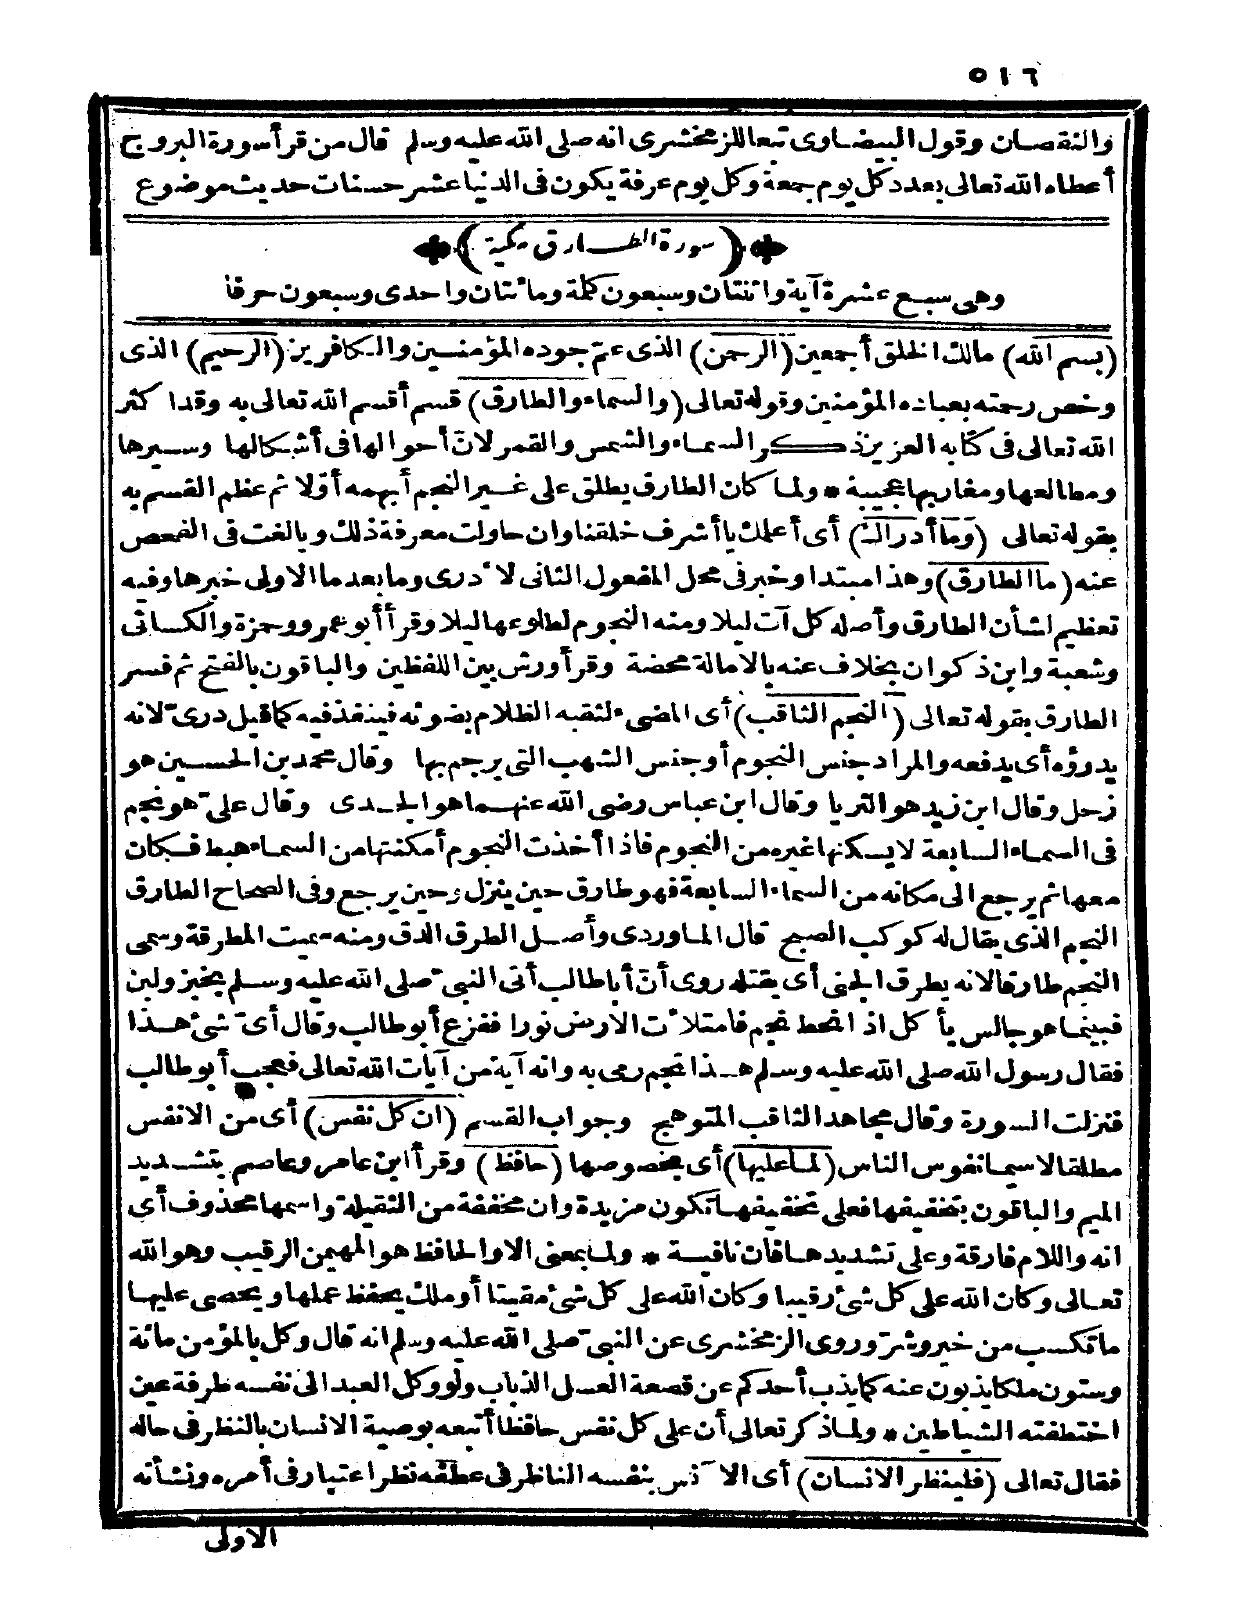 ٥١٦
والنقصان وقول البيضاوى تبعا للزمخشرى انه صلى الله عليه وسلم قال من قرأ سورة البروج
أعطاه الله تعالى بعدد كل يوم جمعة وكل يوم عرفة يكون فى الدنيا عشر حسنات حديث موضوع
(سورة الطارق مكية)
وهى سبع عشرة آية واثنتان وسبعون كلمة ومائتان واحدى وسبعون حرفا
(بسم الله) مالك الخلق أجمعين (الرحمن) الذى عمّ جوده المؤمنين والكافرين (الرحيم) الذى
وخص رحمته بعباده المؤمنين وقوله تعالى (والسماء والطارق) قسم أقسم الله تعالى به وقد أكثر
الله تعالى فى كتابه العزيز ذكر السماء والشمس والقمر لانّ أحوالها فى أشكالها وسيرها
ومطالعها ومغاربها عجيبة * ولما كان الطارق يطلق على غير النجم أبهمه أوّلا ثم عظم القسم به
بقوله تعالى (وما أدراك) أى أعلمك يا أشرف خلقنا وان حاولت معرفة ذلك وبالغت فى الفحص
عنه (ما الطارق) وهذا مبتدا وخبر فى محل المفعول الثانى لا ٔدرى وما بعد ما الاولى خبرها وفيه
تعظيم لشأن الطارق وأصله كل آت ليلا ومنه النجوم لطلوعها ليلا وقرأ أبو عمرو وحمزة والكسائى
وشعبة وابن ذكوان بخلاف عنه بالامالة محضة وقرأ ورش بين اللفظين والباقون بالفتح ثم فسر
الطارق بقوله تعالى (النجم الثاقب) أى المضىء لثقبه الظلام بضوئه فينفذ فيه كما قيل درىّ لانه
يدرؤه أى يدفعه والمراد جنس النجوم أو جنس الشهب التى يرجم بها وقال محمد بن الحسين هو
زحل وقال ابن زيد هو الثريا وقال ابن عباس رضى الله عنهما هو الجدى وقال علىّ هو نجم
فى السماء السابعة لا يسكنها غيره من النجوم فاذا أخذت النجوم أمكنتها من السماء هبط فكان
معها ثم يرجع الى مكانه من السماء السابعة فهو طارق حين ينزل وحين يرجع وفى الصحاح الطارق
النجم الذى يقال له كوكب الصبح قال الماوردى وأصل الطرق الدق ومنه سميت المطرقة وسمى
النجم طارقا لانه يطرق الجنى أى يقتله روى أنّ أبا طالب أتى النبىّ صلى الله عليه وسلم بخبز ولبن
فبينما هو جالس يأكل اذ انحط نجم فامتلا ٔت الارض نورا ففزع أبو طالب وقال أىّ شئ هذا
فقال رسول الله صلى الله عليه وسلم هذا نجم رمى به وانه آية من آيات الله تعالى فعجب أبو طالب
فنزلت السورة وقال مجاهد الثاقب المتوهج وجواب القسم (ان كل نفس) أى من الانفس
مطلقا لاسيما نفوس الناس (لما عليها) أى بخصوصها (حافظ) وقرأ ابن عامر وعاصم بتشديد
الميم والباقون بتخفيفها فعلى تخفيفها تكون مزيدة وان مخففة من الثقيلة واسمها محذوف أى
انه واللام فارقة وعلى تشديدها فان نافية * ولما بمعنى الا والحافظ هو المهيمن الرقيب وهو الله
تعالى وكان الله على كل شئ رقيبا وكان الله على كل شئ مقيتا أو ملك يحفظ عملها ويحصى عليها
ما تكسب من خير وشرّ وروى الزمخشرى عن النبىّ صلى الله عليه وسلم انه قال وكل بالمؤمن مائة
وستون ملكا يذبون عنه كما يذب أحدكم عن قصعة العسل الذباب ولو وكل العبد الى نفسه طرفة عين
اختطفته الشياطين * ولما ذكر تعالى أن على كل نفس حافظا أتبعه بوصية الانسان بالنظر فى حاله
فقال تعالى (فلينظر الانسان) أى الا ٓنس بنفسه الناظر فى عطفه نظر اعتبار فى أمره ونشأته
الاولى